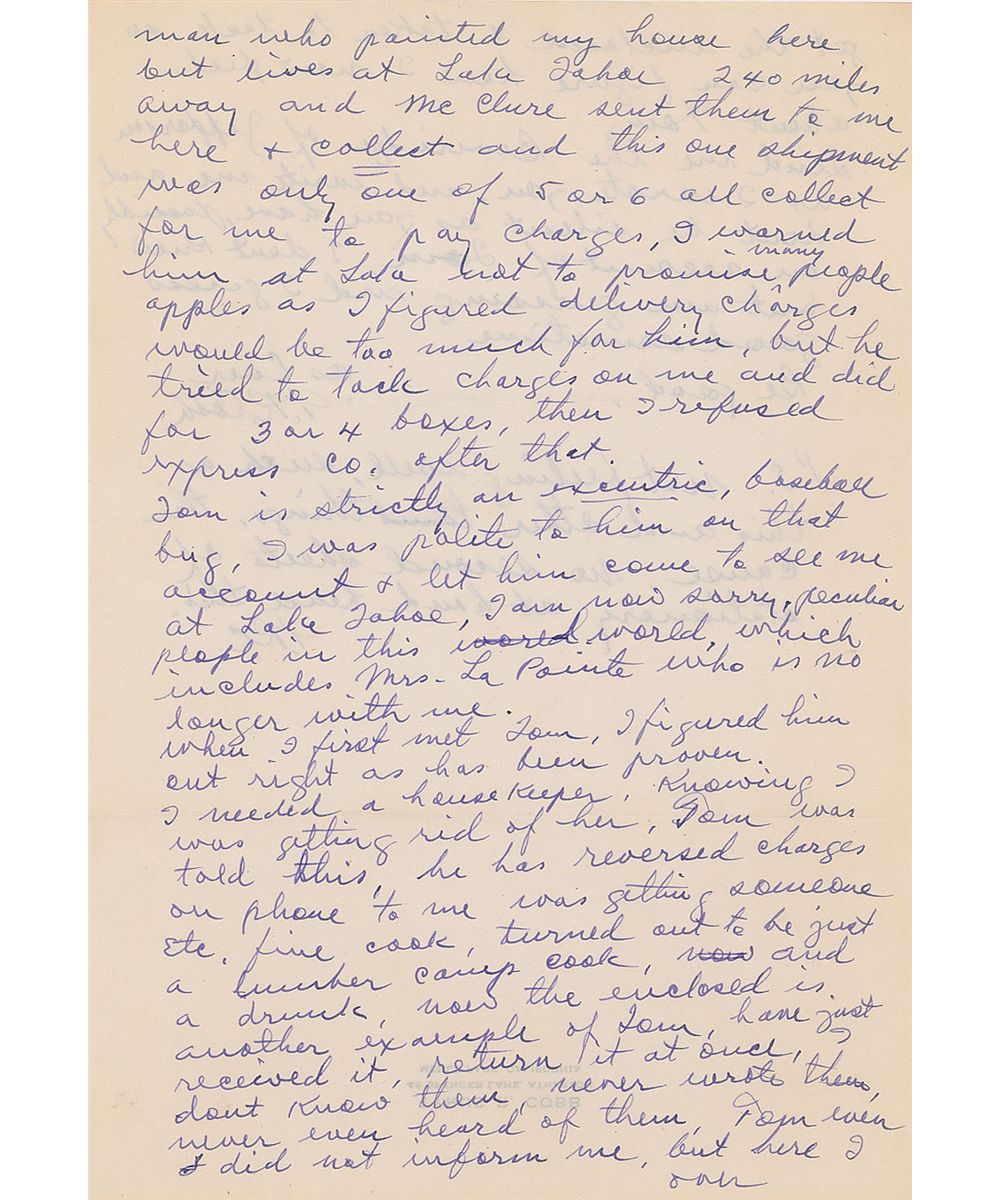 man who painted my house here
but lives at Lake Tahoe 240 miles
away and McClure sent them to me
here & collect and this one shipment
was only one of 5 or 6 all collect
for me to pay charges, I warned
him at Lake not to promise many people
apples as I figured delivery charges
would be too much for him, but he
tried to tack charges on me and did
for 3 or 4 boxes, then I refused
express co. after that.
Tom is strictly an excentric, baseball
bug, I was polite to him on that
account & let him come to see me
at Lake Tahoe, I am now sorry, peculiar
people in this world, which
includes Mrs. La Pointe who is no
longer with me.
when I first met Tom, I figured him
out right as has been proven.
I needed a housekeeper, Knowing I
was getting rid of her, Tom was
told this, he has reversed charges
on phone to me was getting someone
Etc, fine cook, turned out to be just
a lumber camp cook, now and
a drunk, now the enclosed is
another example of Tom, have just
received it, return it at once, I
dont Know them, never wrote them,
never even heard of them, Tom even
did not inform me, but here I
over